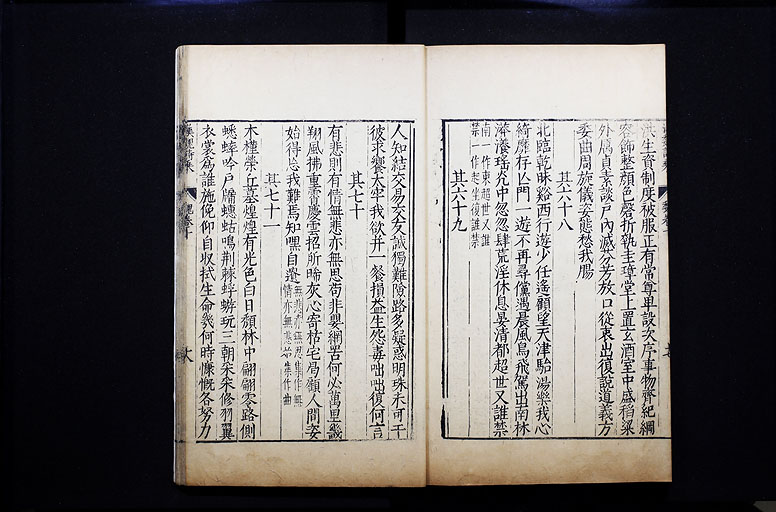 洪生資制度被服正有常尊卑設次序事物齊紀綱
容飾整顏色磬折執圭璋堂上置玄酒室中盛稻粱
外厲貞素談戶內滅芬芳放口從衷出復說道義方
委曲周旋儀姿態愁我腸
其六十八
北臨乾昧谿西行遊少任遙顧望天津駘湯樂我心
綺靡存亡門一遊不再尋儻遇晨風鳥飛駕出南林
漭瀁瑤光中忽忽肆荒淫休息晏清都超世又誰禁
南一作東超世又誰
禁一作起坐復誰禁
其六十九
人知結交易交友誠獨難險路多疑惑明珠未可干
彼求饗太牢我欲并一餐損益生怨毒咄咄復何言
其七十
有悲則有情無悲亦無思茍非嬰網罟何必萬里畿
翔風拂重霄慶雲招所晞灰心寄枯宅曷顧人間姿
始得忘我難焉知嘿自遺
無悲亦無思集作無
情亦無悲始集作曲
其七十一
木槿榮丘墓煌煌有光色白日頹林中翩翩零路側
蟋蟀吟戶牖蟪蛄鳴荊棘蜉蝣玩三朝采采修羽翼
衣裳為誰施俛仰自收拭生命幾何時慷慨各努力